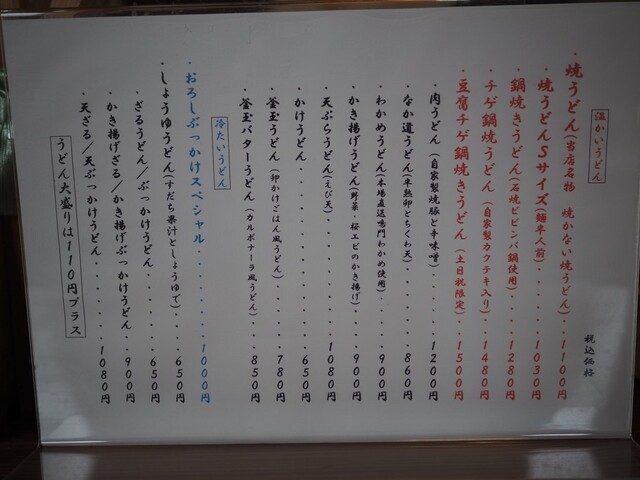 税込価格
温かいうどん
・焼うどん(当店名物 焼かない焼うどん)・1100円
・焼うどんSサイズ(麺半人前)・・・・1030円
・鍋焼きうどん(石焼ビビンバ鍋使用)・・・1280円
・チゲ鍋焼うどん(自家製カクテキ入り)・・・1480円
・豆腐チゲ鍋焼きうどん(土日祝限定)・・・1500円
・肉うどん(自家製焼豚と辛味噌)・・・・1200円
・なか道うどん(半熟卵とちくわ天)・・・・860円
・わかめうどん(本場直送鳴門わかめ使用)・・・900円
・かき揚げうどん(野菜・桜エビのかき揚げ)・・900円
・天ぷらうどん(えび天)・・・・・・1080円
・かけうどん・・・・・・・・・・650円
・釜玉うどん(卵かけごはん風うどん)・・・・780円
・釜玉バターうどん(カルボナーラ風うどん)・・・850円
冷たいうどん
・おろしぶっかけスペシャル・・・・・・・1000円
・しょうゆうどん(すだち果汁としょうゆで)・・・650円
・ざるうどん/ぶっかけうどん・・・・・・650円
・かき揚げざる/かき揚げぶっかけうどん・・・900円
・天ざる/天ぶっかけうどん・・・・・・・1080円
うどん大盛りは110円プラス